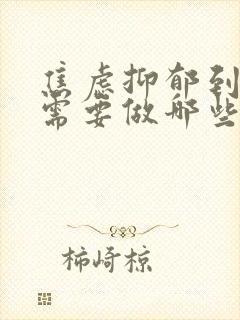 焦虑抑郁到
需要做哪些
柿崎椋